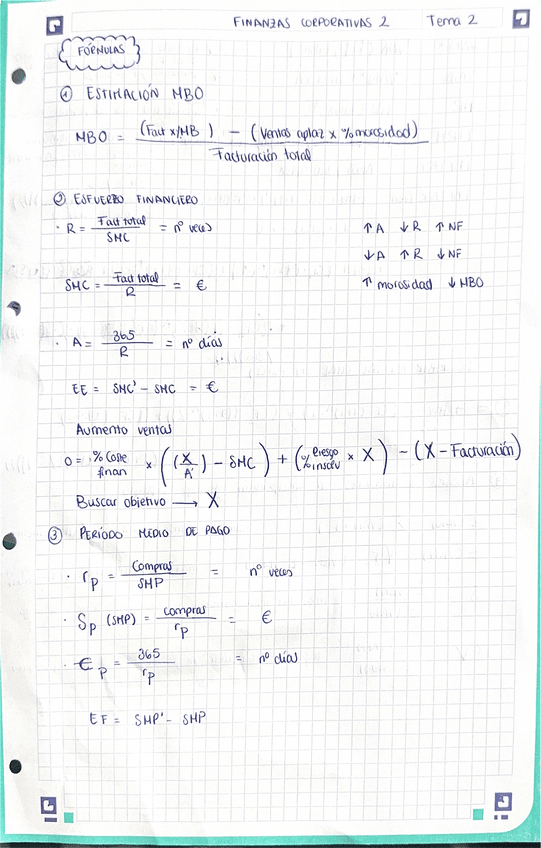 FINANZAS CORPORATIVAS 2 Tema 2
FÓRMULAS
① ESTIMACIÓN MBO
MBO = (Fact x/MB) - (Ventas aplaz x % morosidad) / Facturación total
② ESFUERZO FINANCIERO
· R = Fact total / SMC = nº veces
↑ A ↓ R ↑ NF
↓ A ↑ R ↓ NF
SMC = Fact total / R = €
↑ morosidad ↓ MBO
· A = 365 / R = nº días
EE = SMC' - SMC = €
Aumento ventas
0 = % Coste finan x ((X / A') - SMC) + (% Riesgo insolv x X) - (X - Facturación)
Buscar objetivo → X
③ PERÍODO MEDIO DE PAGO
· rp = Compras / SMP = nº veces
· Sp (SMP) = Compras / rp = €
· €p = 365 / rp = nº días
EF = SMP' - SMP